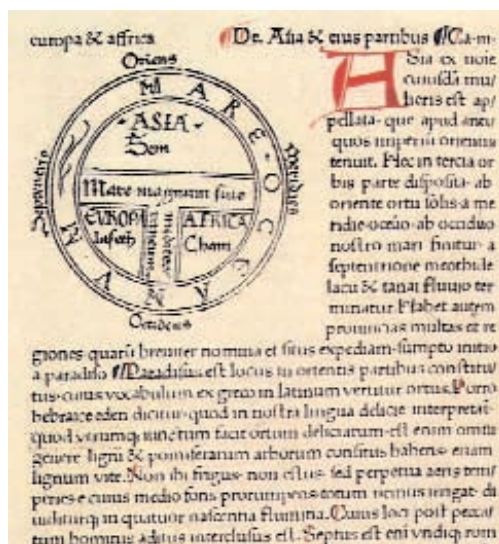 europa & affrica
De. Asia & eius partibus Ca-m-
Oriens
MARE OCEANUM
ASIA
Sem
Mare magnum sive
mediterraneum
EUROPA
Iafeth
AFRICA
Cham
Septentrio
Meridies
Occidens
Asia ex noie
cuiusdā mu/
lieris est ap/
pellata· que apud antiq̄
quos imperiū orientis
tenuit. Hec in tercia or
bis parte disposita· ab
oriente ortu solis· a me
ridie· oceāo· ab occiduo
nostro mari finitur· a
septentrione meothide
lacu & tanai fluuio ter
minatur. Habet autem
prouincias multas et re
giones· quarū breuiter nomina et situs expediam· sumpto initio
a paradiso Paradisus est locus in orientis partibus constitu
tus· cuius vocabulum ex greco in latinum vertitur ortus. Porro
hebraice eden dicitur· quod in nostra lingua delicie interpretat̄
quod utrumq; iunctum facit ortum deliciarum· est enim omni
genere ligni & pomiferarum arborum consitus· habens· etiam
lignum vite. Non ibi frigus· non estus· sed perpetua aeris tem/
peries· e cuius medio fons prorumpens totum nemus irrigat· di
uiditurq; in quatuor nascentia flumina. Cuius loci post peccat̄
tum hominis aditus interclusus est. Septus est eni vndiq; rom